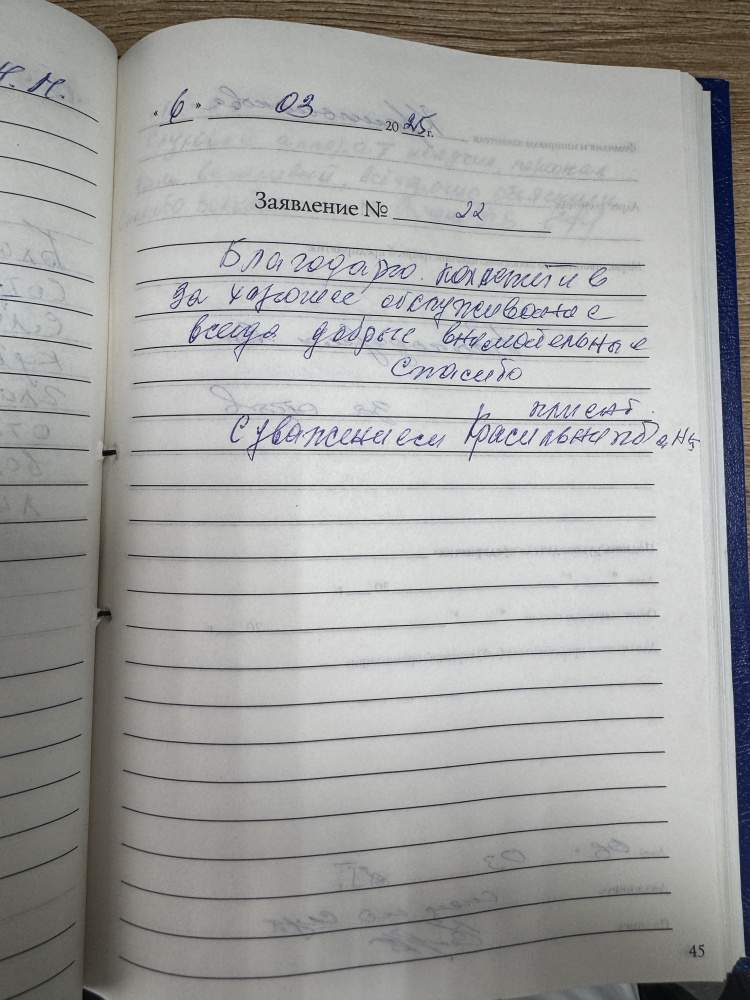 Н. М.
"6" 03 2025 г.
Заявление № 22
Благодарю коллектив
за хорошее обслуживание
всегда добрые внимательные
Спасибо
клиент.
С уважением
45